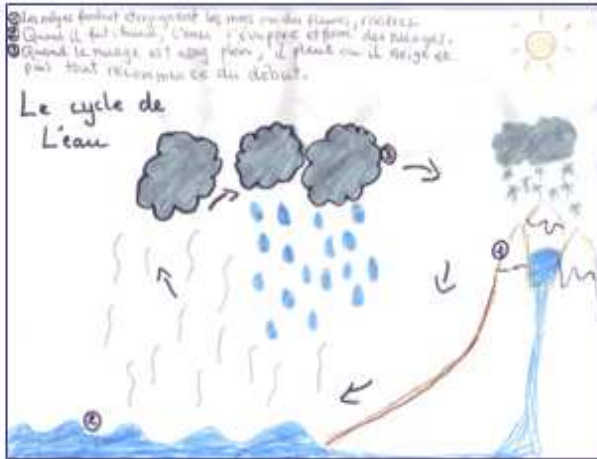 ① Les neiges fondent et rejoignent les mers ou des fleuves, rivières.
② Quand il fait chaud, l'eau s'évapore et forme des nuages.
③ Quand le nuage est assez plein, il pleut ou il neige et
puis tout recommence du début.
Le cycle de
L'eau
③
①
②